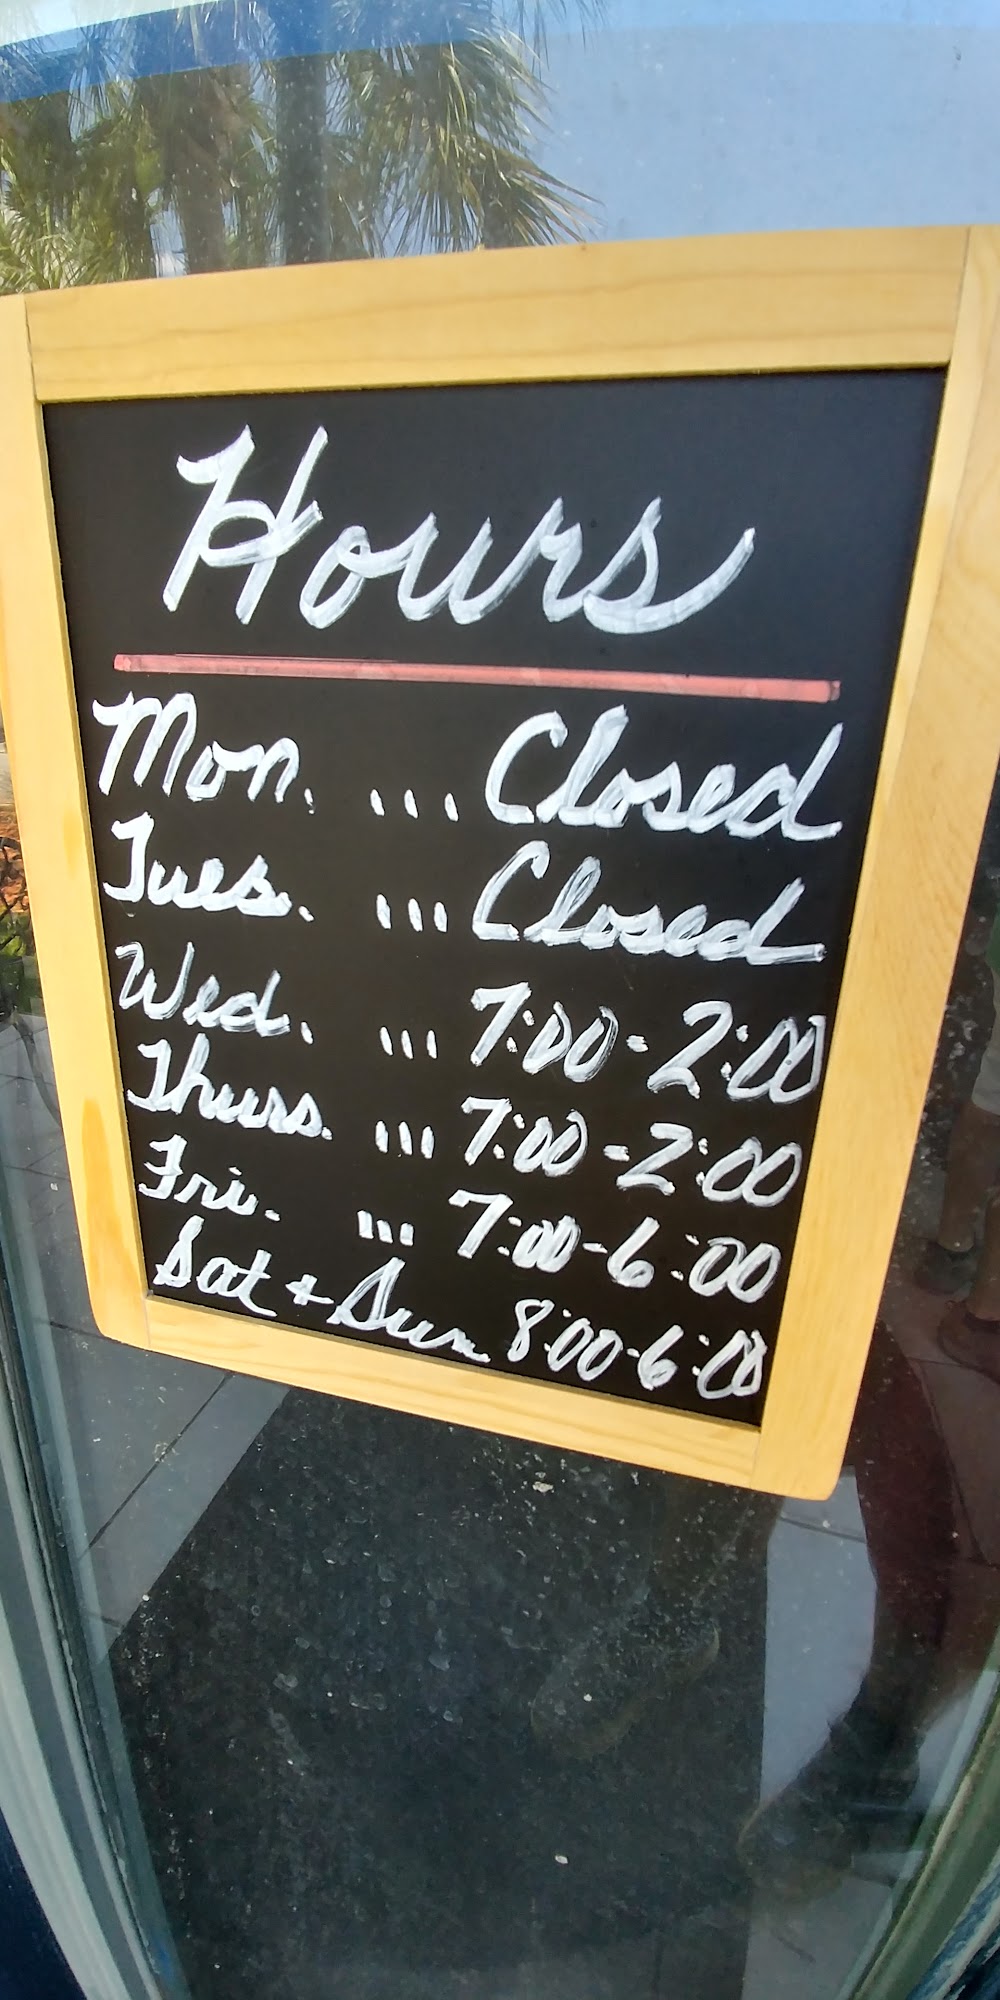 Hours
Mon. ... Closed
Tues. ... Closed
Wed. ... 7:00-2:00
Thurs. ... 7:00-2:00
Fri. ... 7:00-6:00
Sat + Sun 8:00-6:00